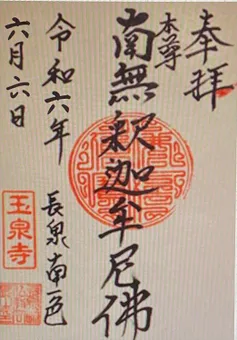 奉拝
本尊
南無釋迦牟尼佛
令和六年
長泉南色
六月六日
玉泉寺